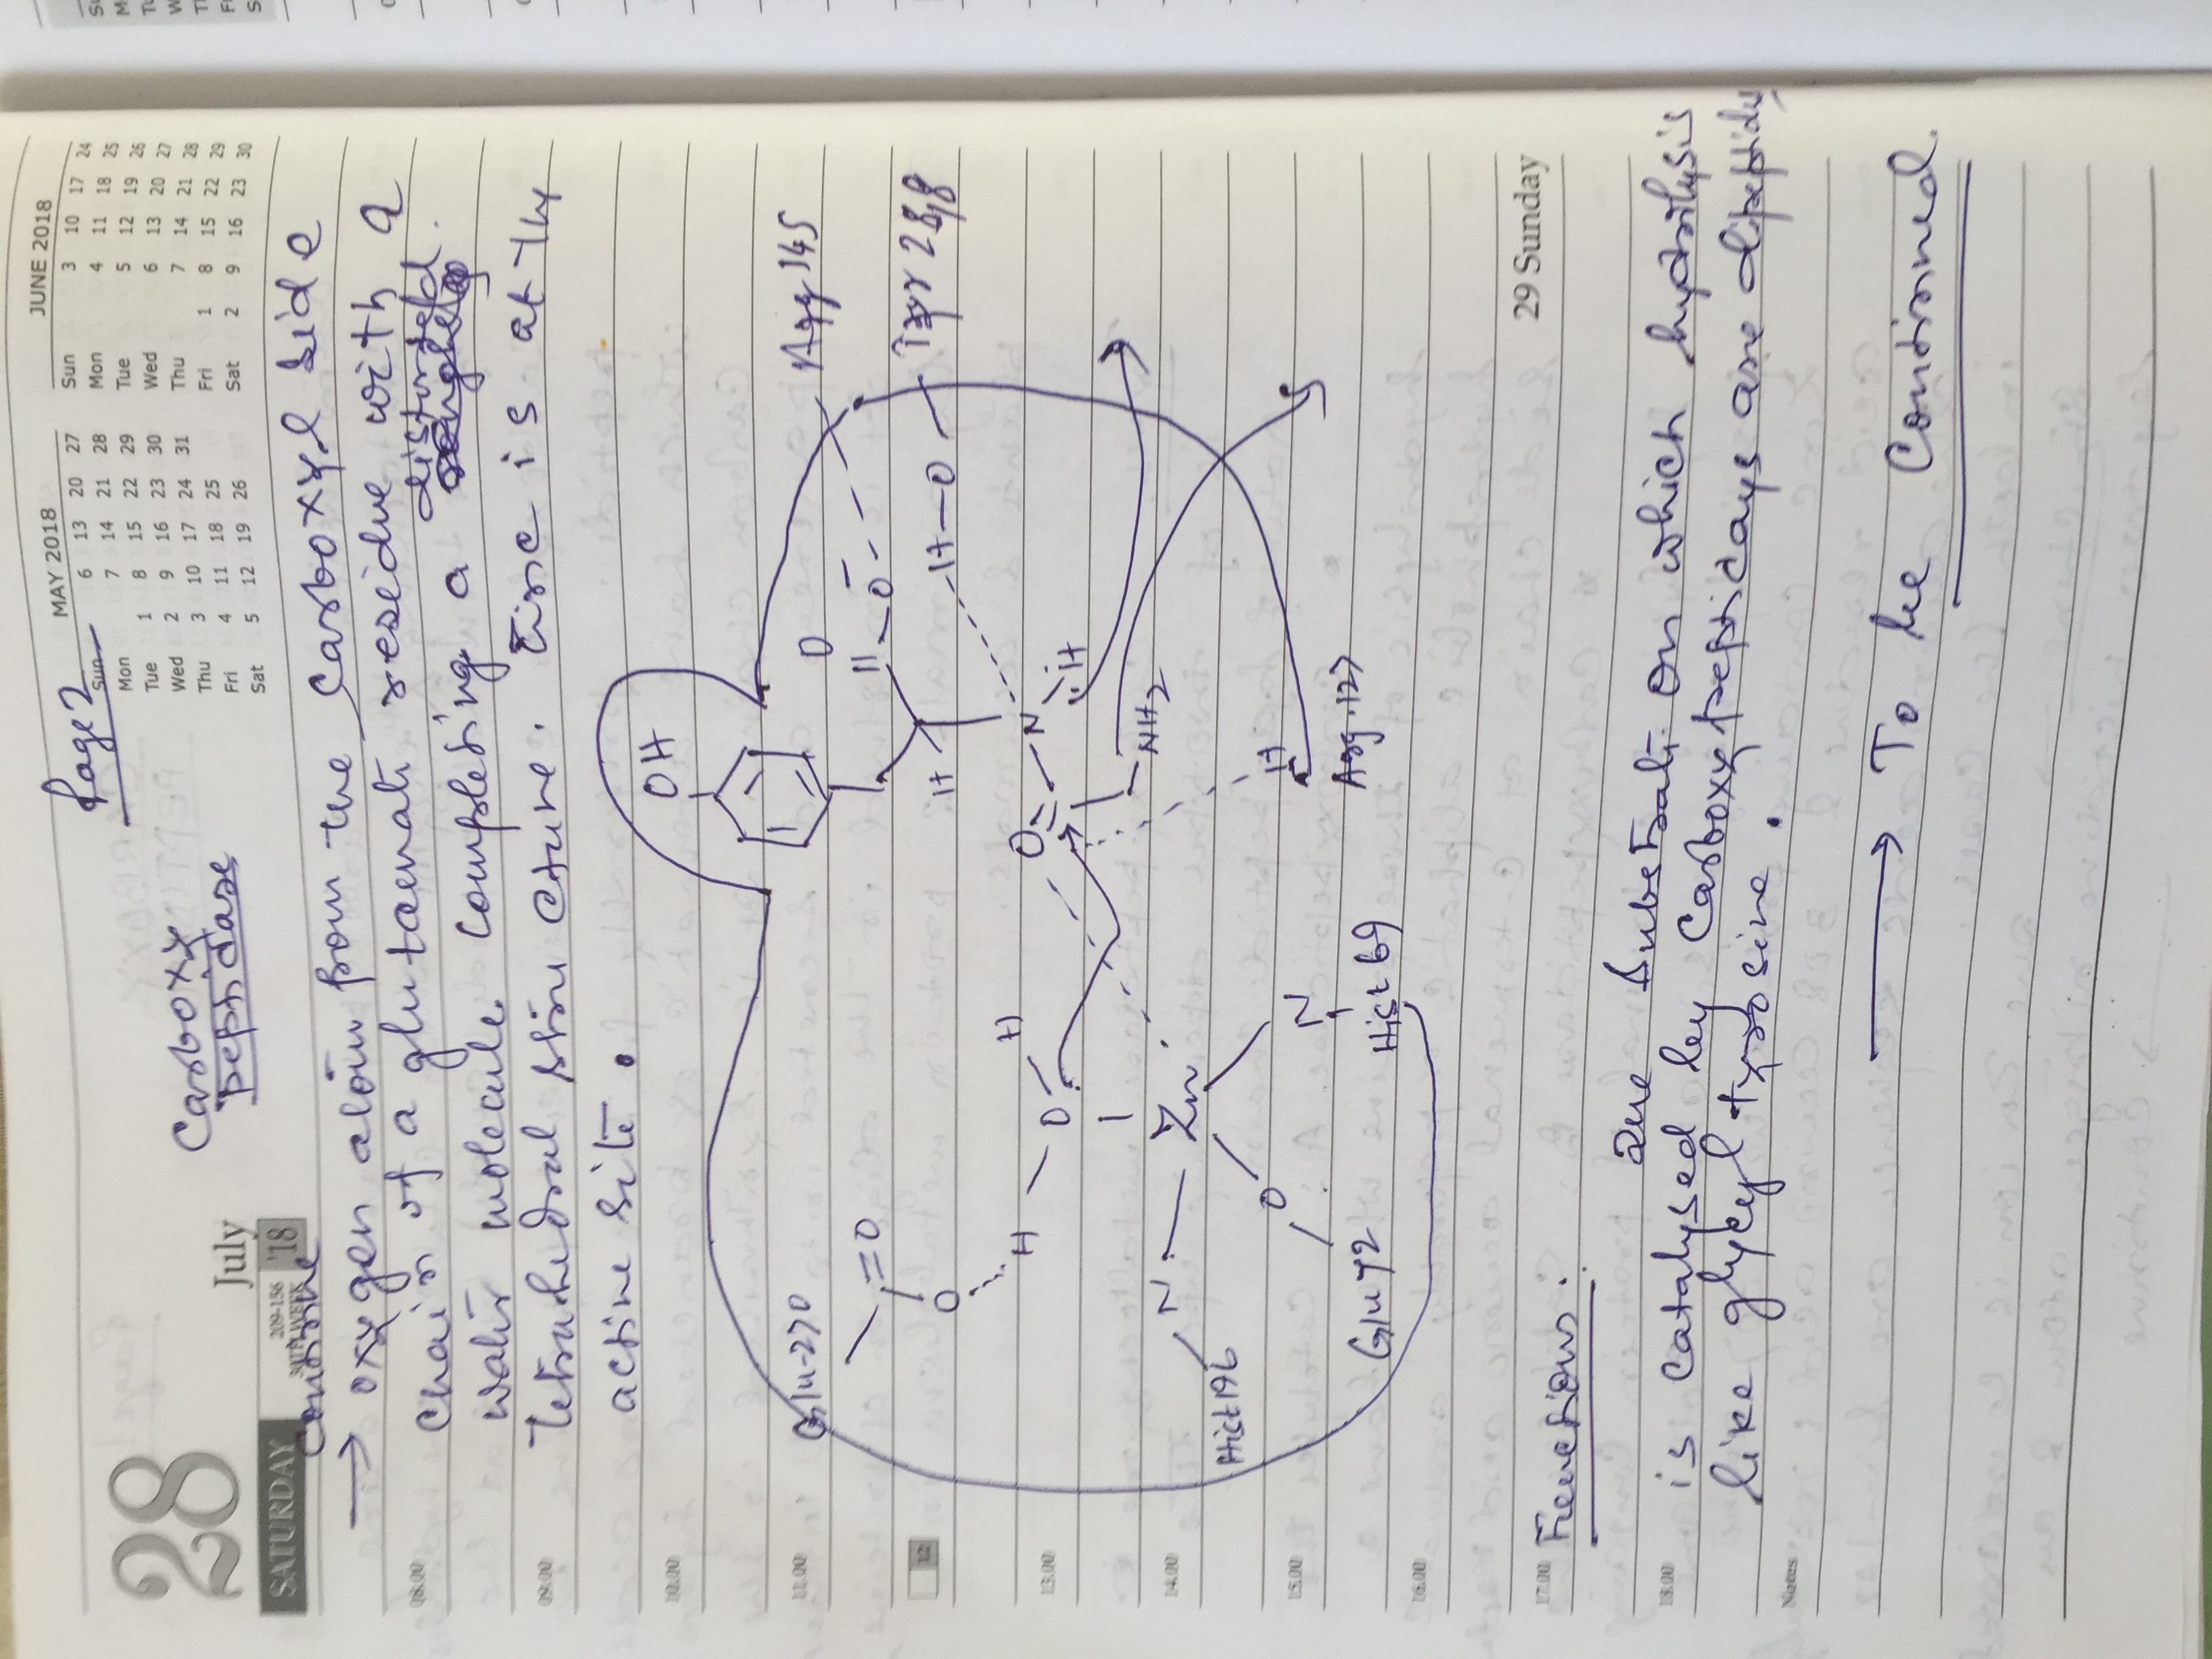 Page 2
MAY 2018
Sun 6 13 20 27
Mon 7 14 21 28
Tue 1 8 15 22 29
Wed 2 9 16 23 30
Thu 3 10 17 24 31
Fri 4 11 18 25
Sat 5 12 19 26
JUNE 2018
Sun 3 10 17 24
Mon 4 11 18 25
Tue 5 12 19 26
Wed 6 13 20 27
Thu 7 14 21 28
Fri 1 8 15 22 29
Sat 2 9 16 23 30
28
July
SATURDAY
209-156
30TH WEEK
'18
Carboxy
peptidase
Continue
→ oxygen atom from the Carboxyl side
chain of a glutaenate residue with a
water molecule completing a distorted.
tetrahedral structure. Zinc is at the
active site.
08.00
09.00
10.00
11.00
12
13.00
14.00
15.00
16.00
17.00
18.00
OH
Arg 145
O
O-
Tyr 248
H—O
H
N
H
O
NH2
H
Arg.127
Glu-270
=O
O
H
O
H
Zn
N
Hist 196
O
Glu 72
N
Hist 69
29 Sunday
Functions:
The Substrate on which hydrilysis
is catalysed by Carboxypeptidays are dipeptides,
like glycyl tyrosine.
Notes
→ To be Continued.